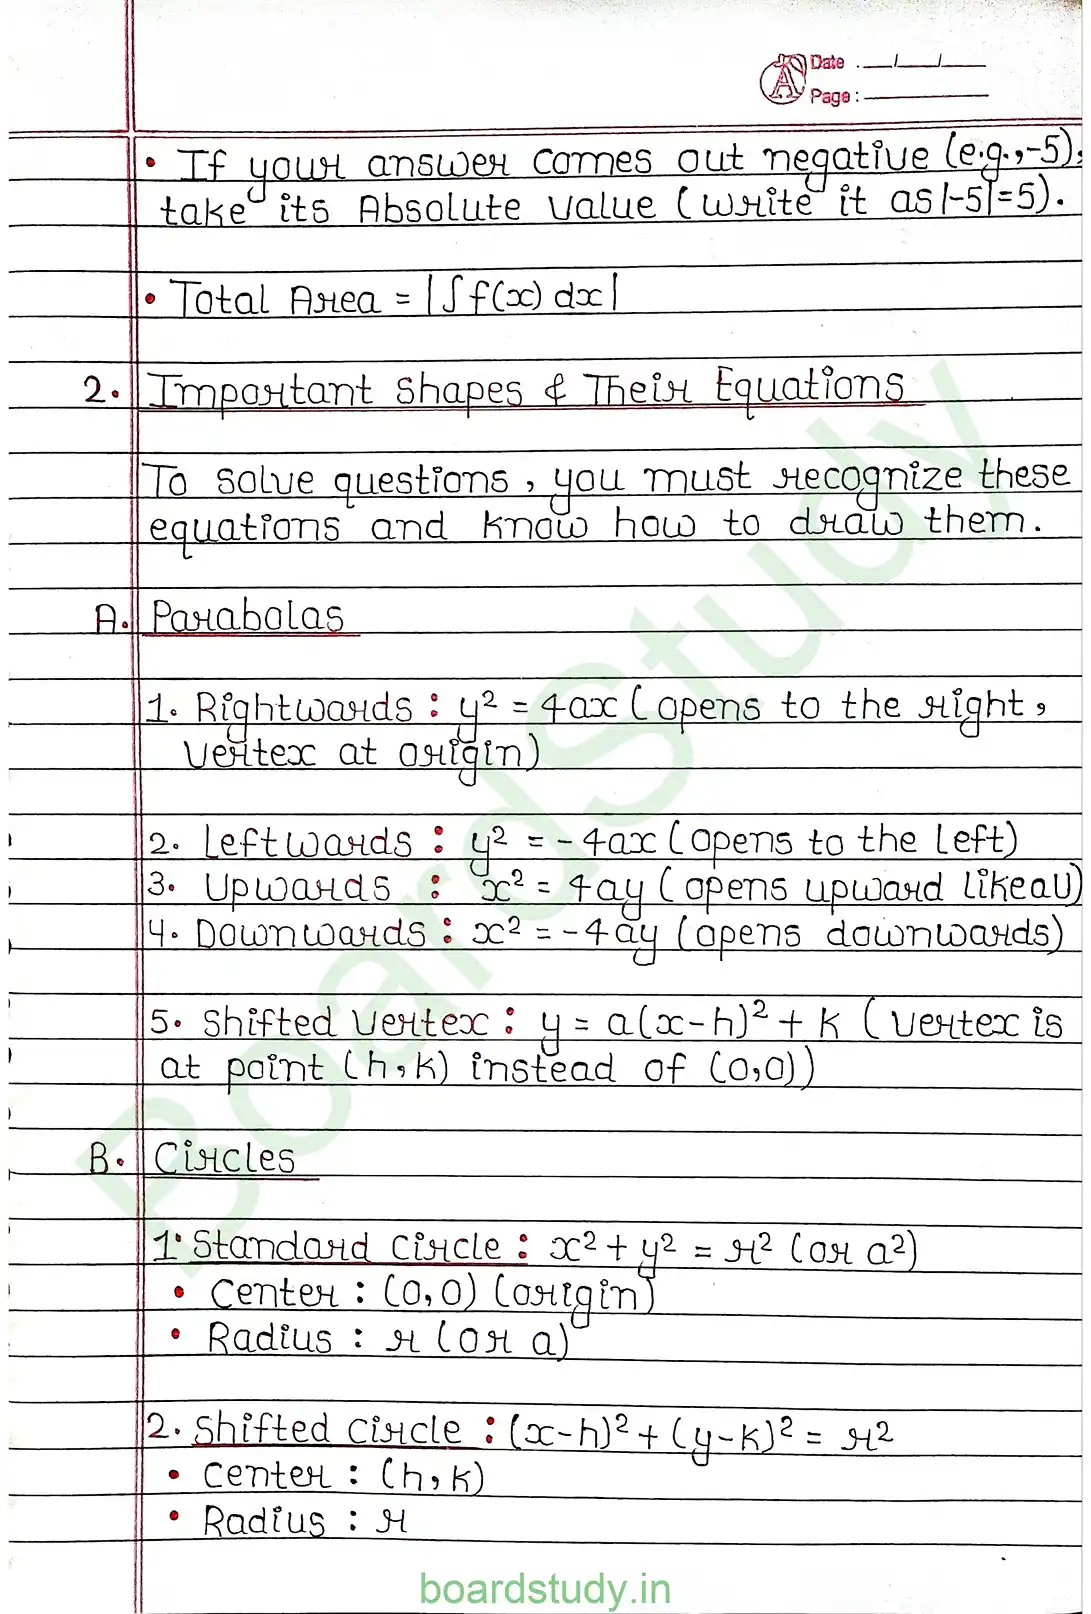 Date : __/__/__
Page : ______
• If your answer comes out negative (e.g.,-5),
take its Absolute value (write it as |-5|=5).
• Total Area = |∫f(x) dx|
2. Important Shapes & Their Equations
To solve questions, you must recognize these
equations and know how to draw them.
A. Parabolas
1. Rightwards : y² = 4ax (opens to the right,
vertex at origin)
2. Leftwards : y² = -4ax (opens to the left)
3. Upwards : x² = 4ay (opens upward like a U)
4. Downwards : x² = -4ay (opens downwards)
5. Shifted Vertex : y = a(x-h)² + k (vertex is
at point (h,k) instead of (0,0))
B. Circles
1. Standard Circle : x² + y² = r² (or a²)
• Center : (0,0) (origin)
• Radius : r (or a)
2. Shifted Circle : (x-h)² + (y-k)² = r²
• Center : (h,k)
• Radius : r
BoardStudy
boardstudy.in